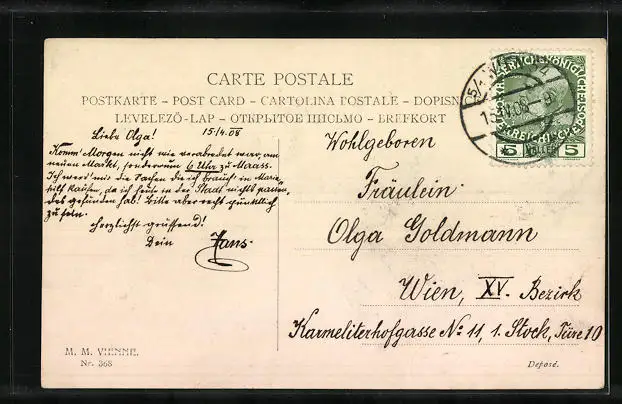 CARTE POSTALE
POSTKARTE – POST CARD – CARTOLINA POSTALE – DOPISN
LEVELEZŐ-LAP – ОТКРЫТОЕ ПИСЬМО – BREFKORT
Liebe Olga! 15/4.08
Komm' Morgen nicht wie verabredet war, am
neuen Markt, sondern um 6 Uhr zu Maass.
Ich werd' mir die Sachen die ich brauch' in Maria
hilf kaufen, da ich heute in der Stadt nichts passen
des gefunden hab! Bitte aber recht pünktlich
zu sein.
Herzlichst grüssend!
Dein Hans.
Wohlgeboren
Fräulein
Olga Goldmann
Wien, XV. Bezirk
Karmeliterhofgasse No 11, 1. Stock, Türe 10
5 5
M. M. VIENNE.
Nr. 368
Déposé.